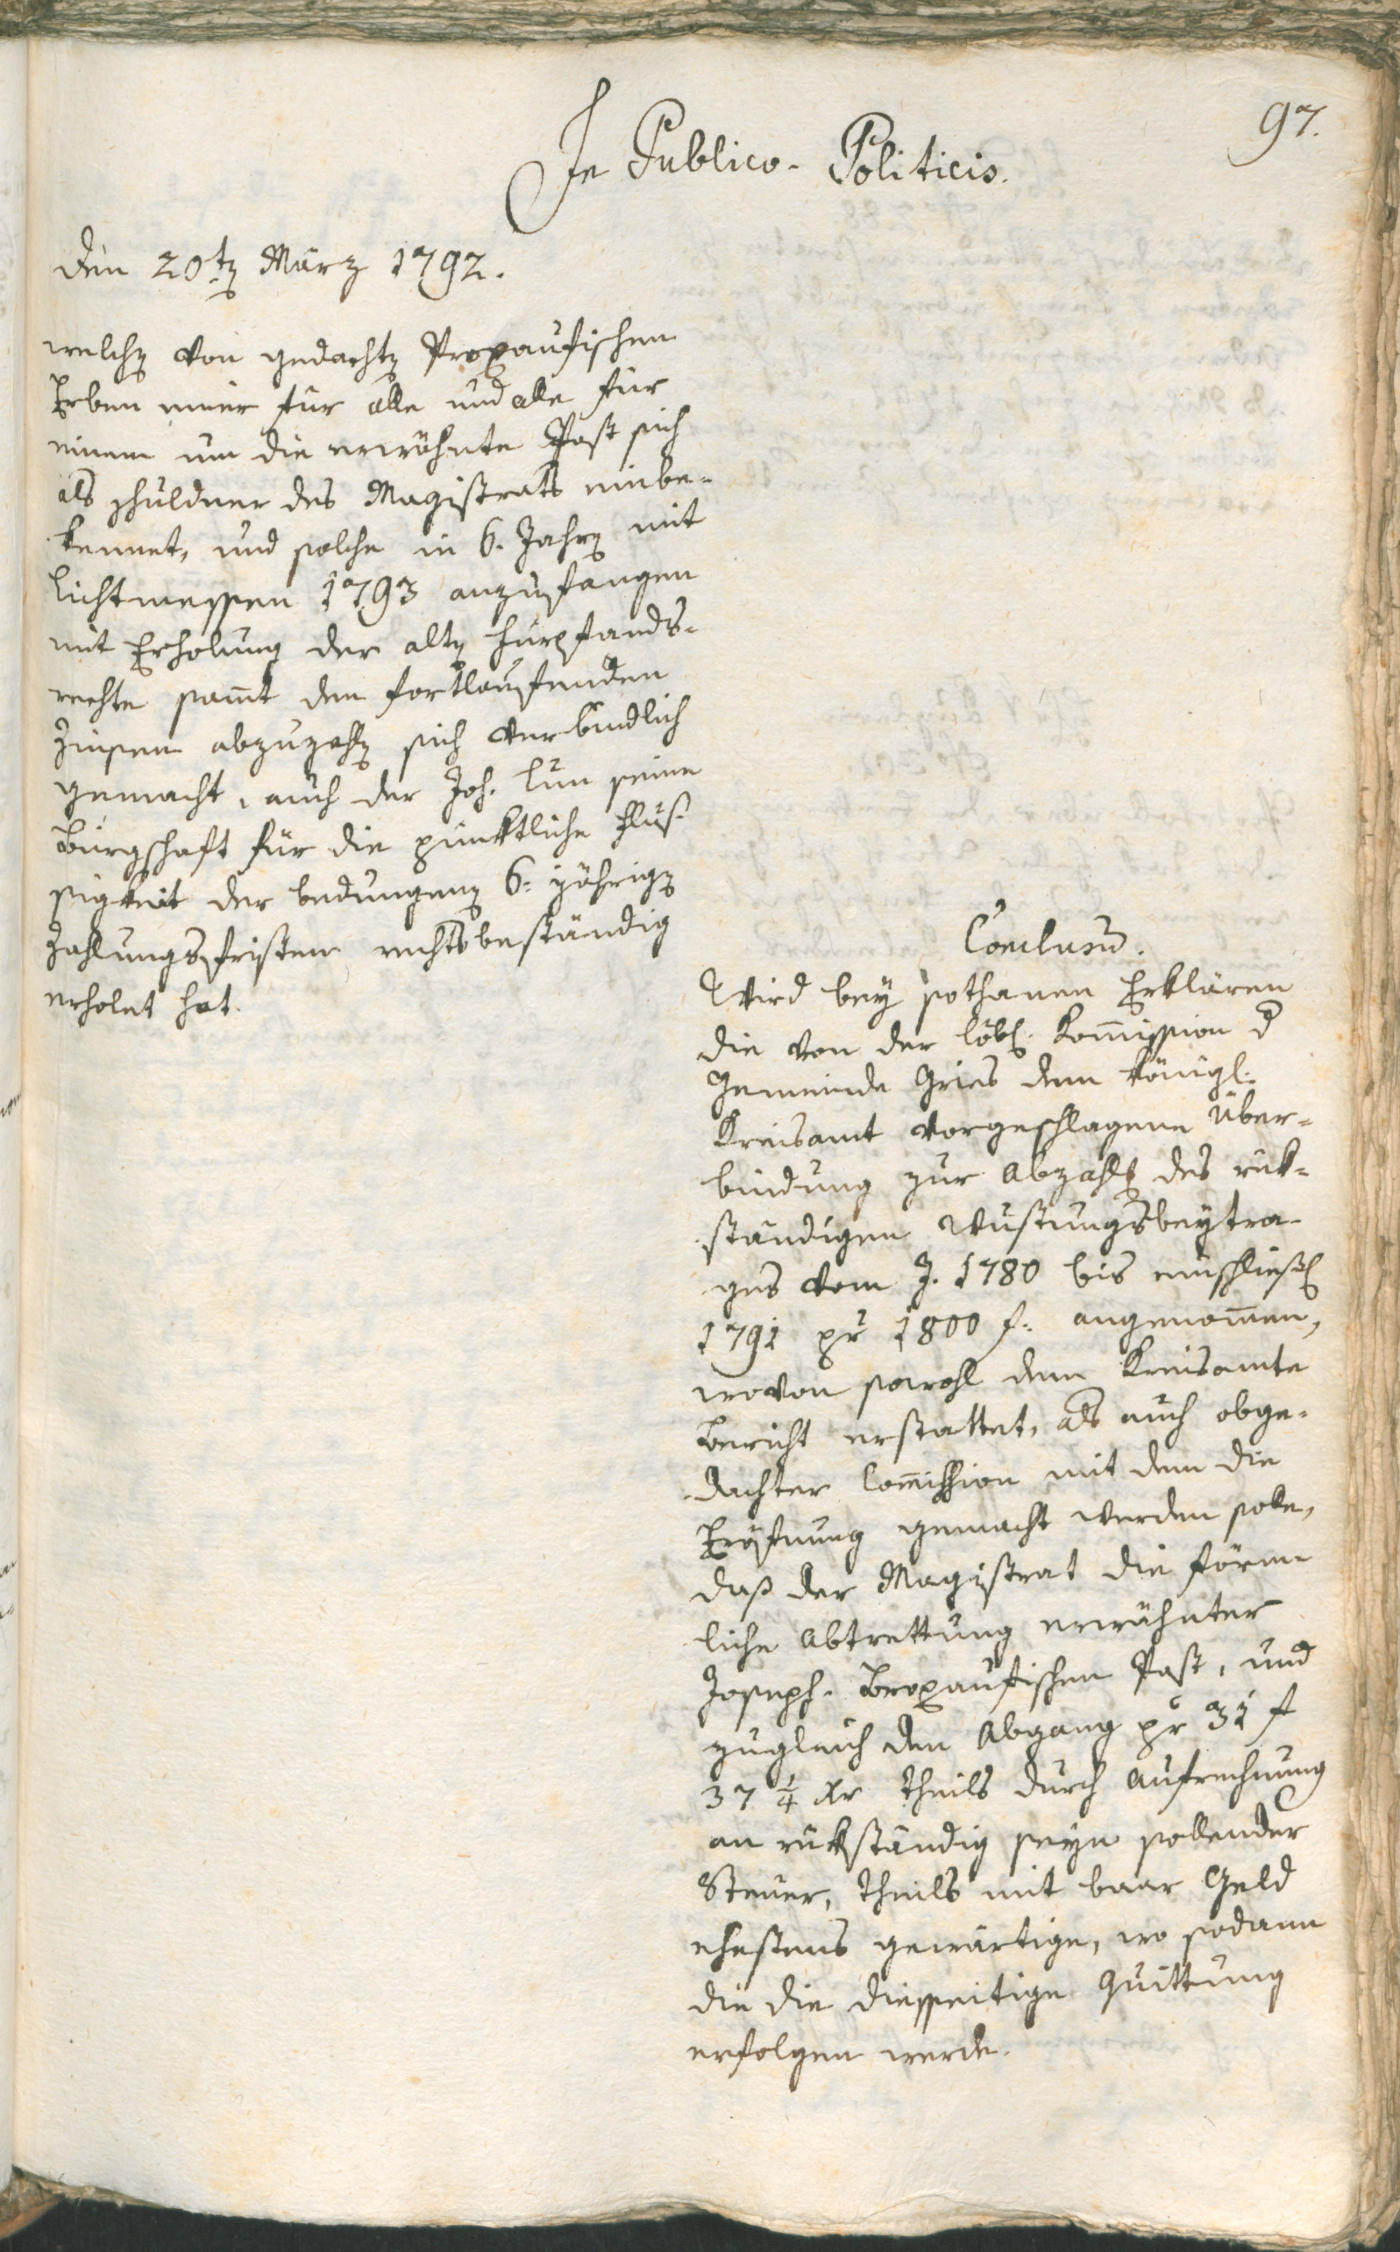 97.
In Publico-Politicis.
den 20ten März 1792.
welchen von gedachten Proxaufischen
Erben einer für alle und alle für
einem um die erwöhnte Post sich
als schuldner des Magistrats einbe-
kennet, und solche in 6. Jahren mit
Lichtmessen 1793 anzufangen
mit Erholung der alten Fürpfands-
rechte samt den fortlaufenden
Zinsen abzuzahlen sich verbindlich
gemacht, auch der Joh. Lun seine
Bürgschaft für die pünktliche Flüs-
sigkeit der bedungenen 6: jährigen
Zahlungsfristen rechtsbeständig
erholet hat.
Conclusum.
Wird bey sothanen Erklären
die von der löbl. Kommission d
Gemeinde Gries dem königl.
Kreisamt vorgeschlagene Über-
bindung zur Abzahlung des rük-
ständigen Wustungsbeytra-
ges vom J. 1780 bis einschließl
1791 pr 1800 f. angenommen,
wovon sowohl dem Kreisamte
Bericht erstattet, als auch obge-
dachter Commission mit dem die
Eröfnung gemacht werden solle,
daß der Magistrat die förm-
liche Abtrettung erwähnter
Joseph-Broxaufischen Post, und
zugleich den Abgang pr 31 f
37 1/4 Xr theils durch Aufrechnung
an rükständig seyn sollender
Steuer, theils mit baar Geld
ehestens gewärtige, wo sodann
die die diesseitige Quittung
erfolgen werde.